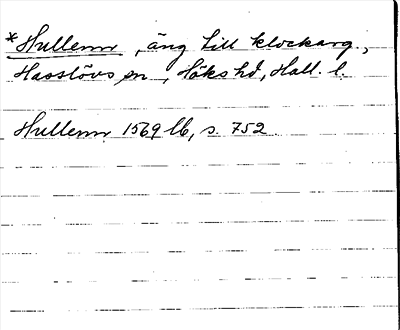 *Hullenn, äng till klockarg.,
Hasslövs sn, Höks hd, Hall. l.
Hullenn 1569 lb, s. 752